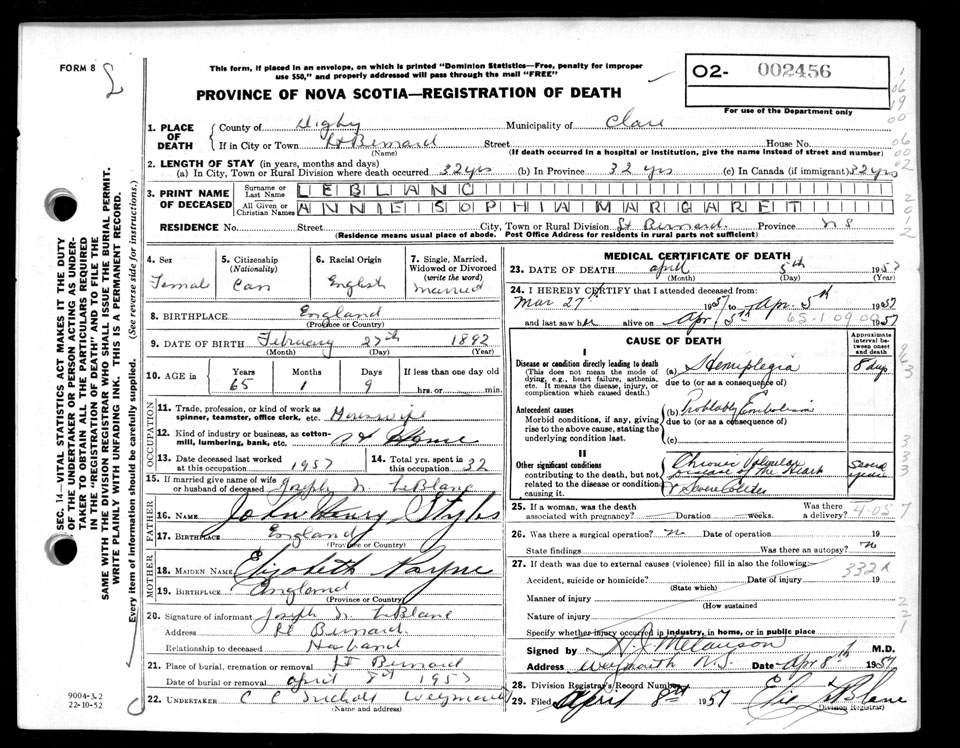 FORM 8
This form, if placed in an envelope, on which is printed "Dominion Statistics—Free, penalty for improper
use $50," and properly addressed will pass through the mail "FREE"
PROVINCE OF NOVA SCOTIA—REGISTRATION OF DEATH
02- 002456
For use of the Department only
1. PLACE OF DEATH
County of Digby Municipality of Clare
If in City or Town St Bernard Street House No.
(Name) (If death occurred in a hospital or institution, give the name instead of street and number)
2. LENGTH OF STAY (in years, months and days)
(a) In City, Town or Rural Division where death occurred 32 yrs (b) In Province 32 yrs (c) In Canada (if immigrant) 32 yrs
3. PRINT NAME OF DECEASED
Surname or Last Name LEBLANC
All Given or Christian Names ANNIE SOPHIA MARGARET
RESIDENCE No. Street City, Town or Rural Division St Bernard Province N S
(Residence means usual place of abode. Post Office Address for residents in rural parts not sufficient)
4. Sex Female
5. Citizenship (Nationality) Can
6. Racial Origin English
7. Single, Married, Widowed or Divorced (write the word) Married
8. BIRTHPLACE England
(Province or Country)
9. DATE OF BIRTH February 27th 1892
(Month) (Day) (Year)
10. AGE in Years 65 Months 1 Days 9 If less than one day old
hrs. or min.
OCCUPATION
11. Trade, profession, or kind of work as spinner, teamster, office clerk, etc. Housewife
12. Kind of industry or business, as cotton-mill, lumbering, bank, etc. at Home
13. Date deceased last worked at this occupation 1957
14. Total yrs. spent in this occupation 32
15. If married give name of wife or husband of deceased Joseph N. LeBlanc
FATHER
16. NAME John Henry Styles
17. BIRTHPLACE England
(Province or Country)
MOTHER
18. MAIDEN NAME Elizabeth Nayne
19. BIRTHPLACE England
(Province or Country)
20. Signature of informant Joseph N. LeBlanc
Address St Bernard.
Relationship to deceased Husband
21. Place of burial, cremation or removal St Bernard
Date of burial or removal april 8th 1957
22. UNDERTAKER C C Weymouth
(Name and address)
MEDICAL CERTIFICATE OF DEATH
23. DATE OF DEATH april 5th 1957
(Month) (Day) (Year)
24. I HEREBY CERTIFY that I attended deceased from:
Mar 27th 1957 to Apr. 5th 1957
and last saw her alive on Apr. 5th 1957
65-1-09 00
CAUSE OF DEATH
Approximate interval between onset and death
I
Disease or condition directly leading to death
(This does not mean the mode of dying, e.g., heart failure, asthenia, etc. It means the disease, injury, or complication which caused death.)
(a) Hemiplegia 8 days
due to (or as a consequence of)
Antecedent causes
Morbid conditions, if any, giving rise to the above cause, stating the underlying condition last.
(b) Probably Embolism
due to (or as a consequence of)
(c)
II
Other significant conditions
contributing to the death, but not related to the disease or condition causing it.
Chronic Valvular
Disease of the Heart
Several years
25. If a woman, was the death associated with pregnancy? Duration weeks. Was there a delivery?
4-05
26. Was there a surgical operation? no Date of operation 19
State findings Was there an autopsy? no
27. If death was due to external causes (violence) fill in also the following:—
332X
Accident, suicide or homicide? Date of injury 19
(State which)
Manner of injury
(How sustained
Nature of injury
Specify whether injury occurred in industry, in home, or in public place
Signed by Melanson M.D.
Address Weymouth N.S. Date Apr 8th 1957
28. Division Registrar's Record Number
29. Filed April 8th 1957 Elie LeBlanc
(Division Registrar)
SEC. 14—VITAL STATISTICS ACT MAKES IT THE DUTY
OF THE UNDERTAKER OR PERSON ACTING AS UNDERTAKER
TO OBTAIN ALL THE PARTICULARS REQUIRED
IN THE "REGISTRATION OF DEATH" AND TO FILE THE
SAME WITH THE DIVISION REGISTRAR WHO SHALL ISSUE THE BURIAL PERMIT.
WRITE PLAINLY WITH UNFADING INK. THIS IS A PERMANENT RECORD.
Every item of information should be carefully supplied. (See reverse side for instructions.)
9004-3.2
22-10-52